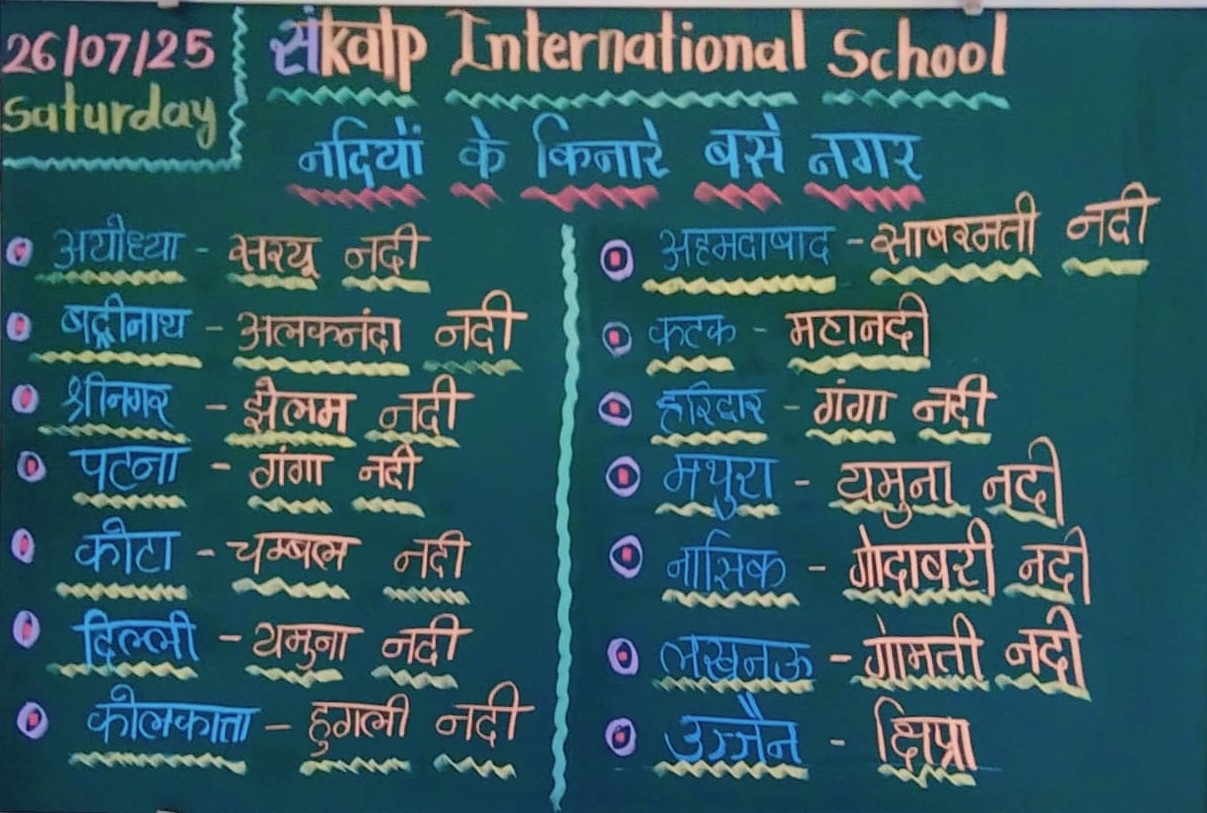 26/07/25
Saturday
संkalp International School
नदियों के किनारे बसे नगर
अयोध्या - सरयू नदी
बद्रीनाथ - अलकनंदा नदी
श्रीनगर - झेलम नदी
पटना - गंगा नदी
कोटा - चम्बल नदी
दिल्ली - यमुना नदी
कोलकाता - हुगली नदी
अहमदाबाद - साबरमती नदी
कटक - महानदी
हरिदार - गंगा नदी
मथुरा - यमुना नदी
नासिक - गोदावरी नदी
लखनऊ - गोमती नदी
उज्जैन - क्षिप्रा